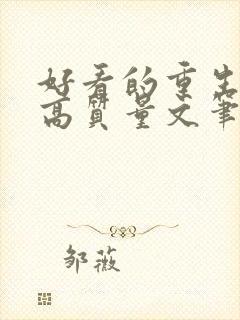 好看的重生
高质量文笔
邹薇